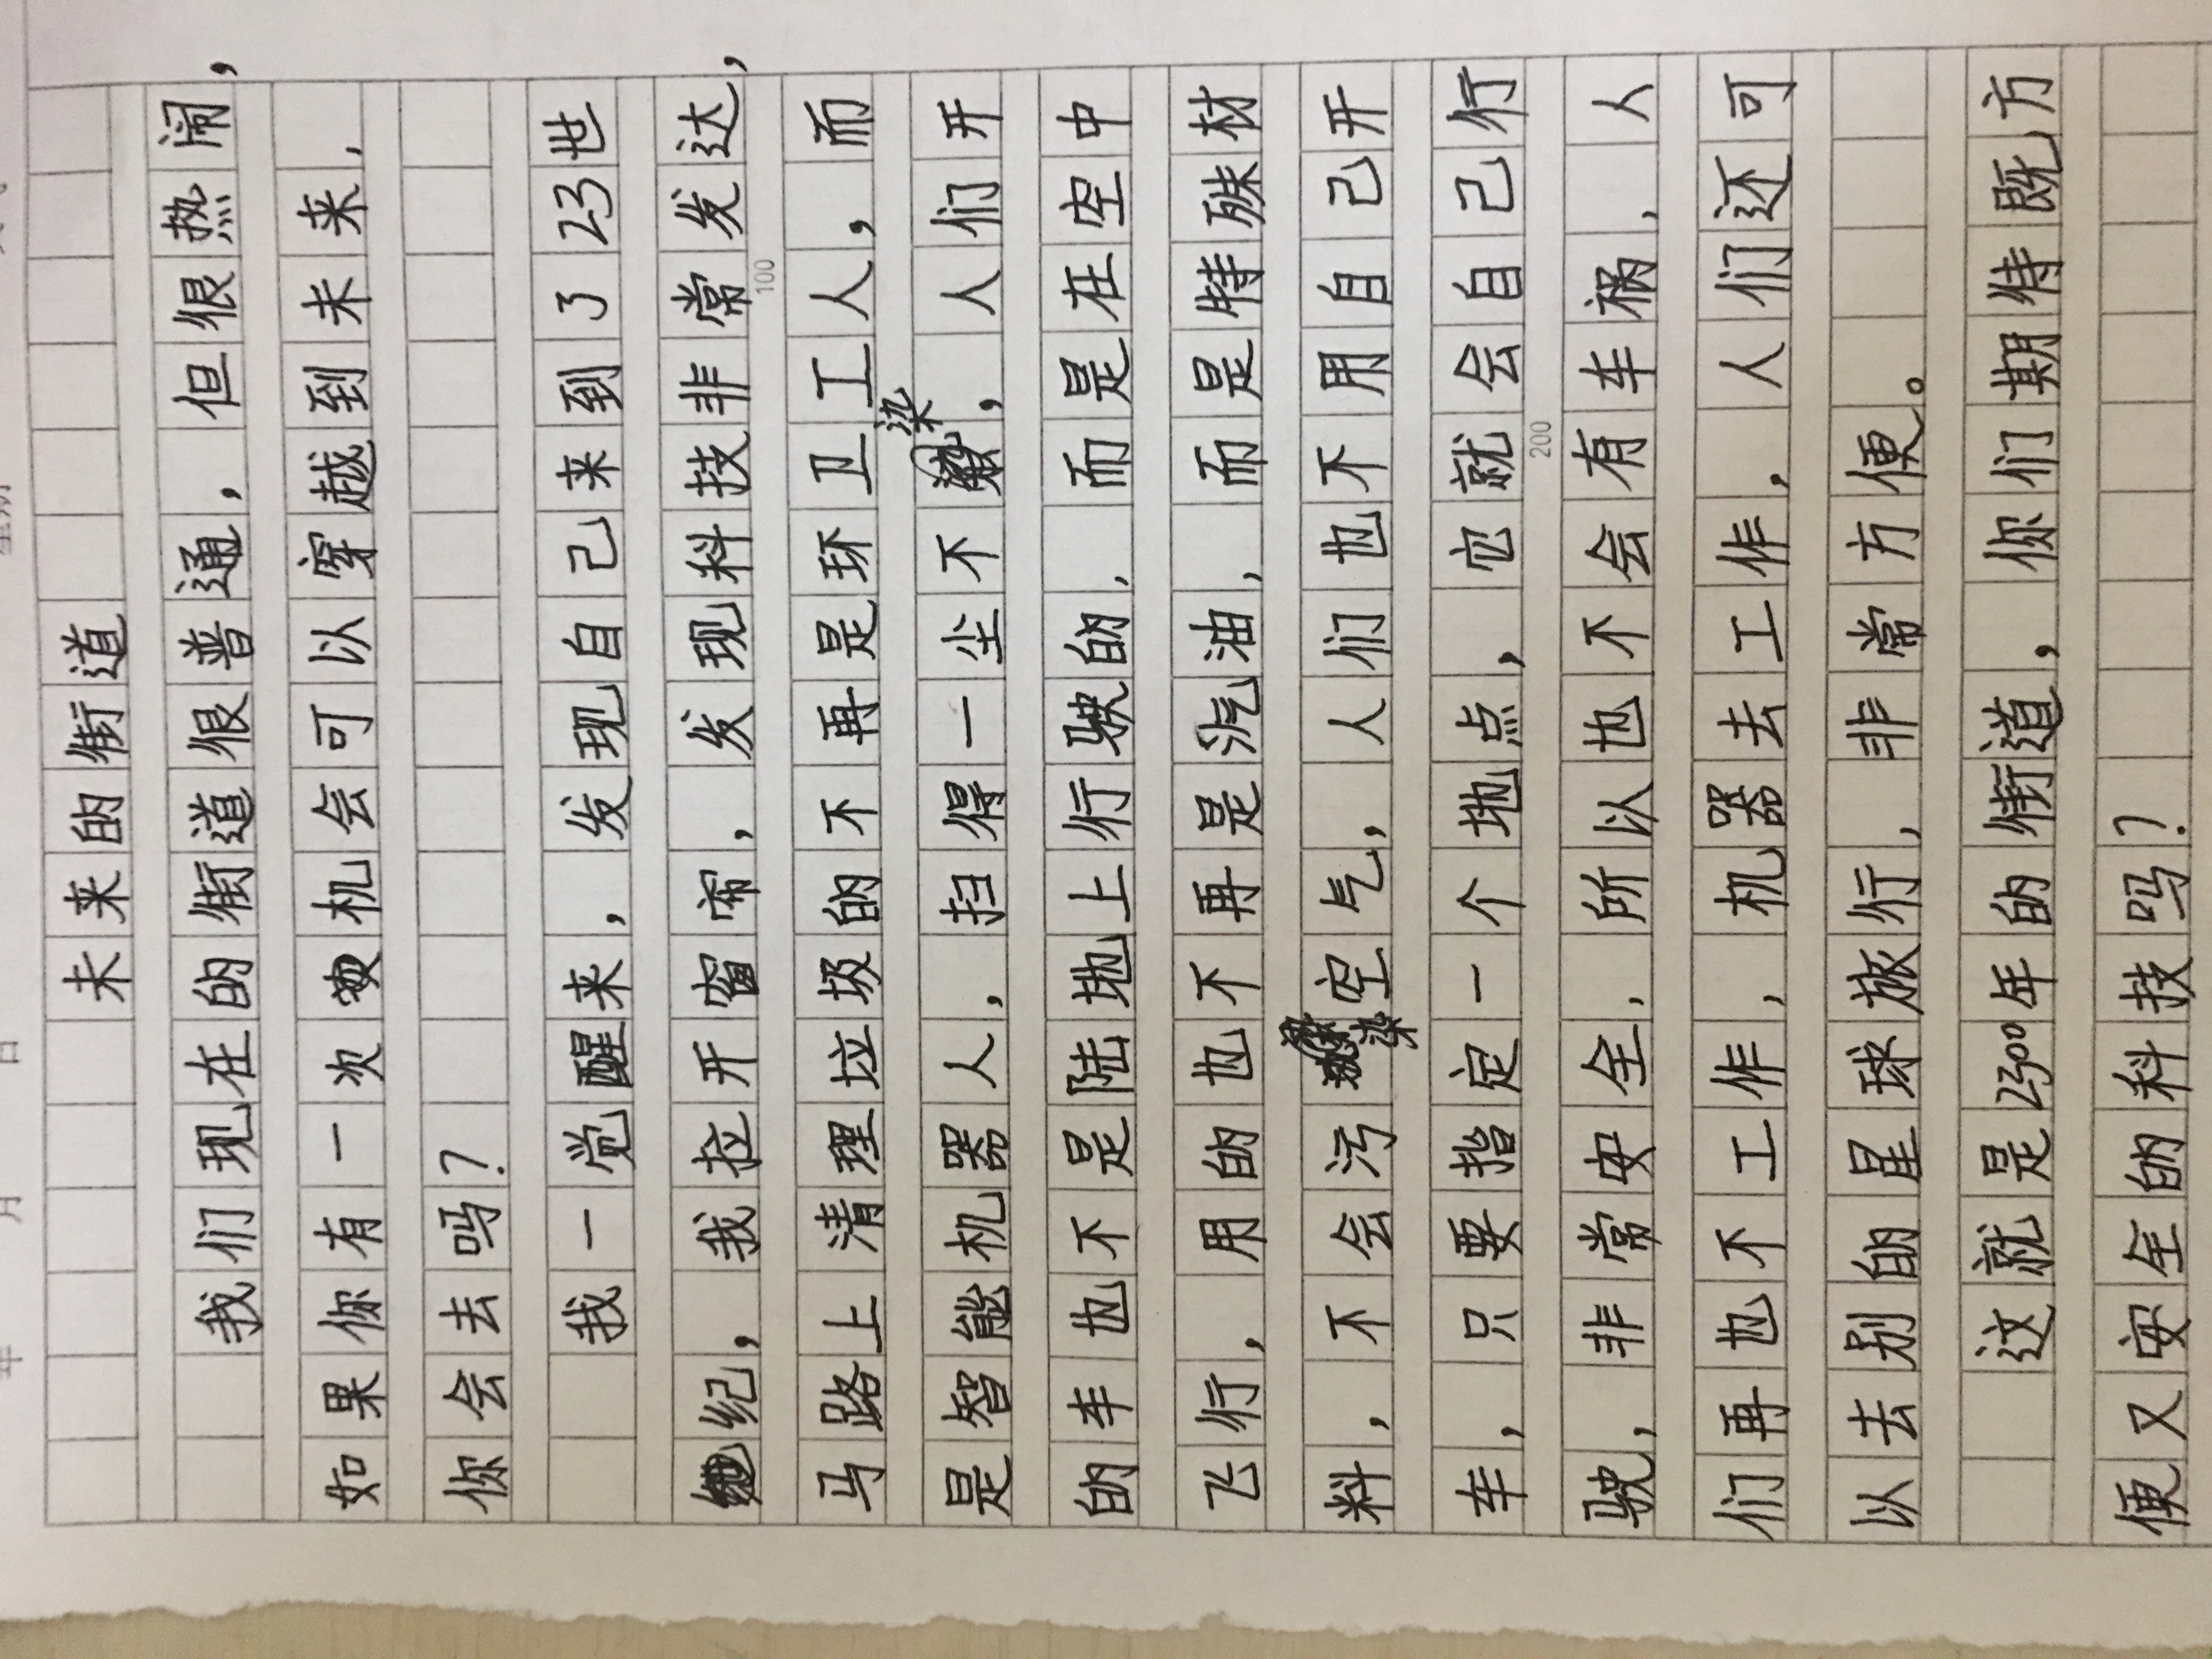 未来的街道
我们现在的街道很普通，但很热闹，
如果你有一次机会可以穿越到未来，
你会去吗？
我一觉醒来，发现自己来到了23世
纪，我拉开窗帘，发现科技非常发达，
100
马路上清理垃圾的不再是环卫工人，而
是智能机器人，扫得一尘不染，人们开
的车也不是陆地上行驶的，而是在空中
飞行，用的也不再是汽油，而是特殊材
料，不会污染空气，人们也不用自己开
车，只要指定一个地点，它就会自己行
200
驶，非常安全，所以也不会有车祸，人
们再也不工作，机器去工作，人们还可
以去别的星球旅行，非常方便。
这就是2300年的街道，你们期待既方
便又安全的科技吗？